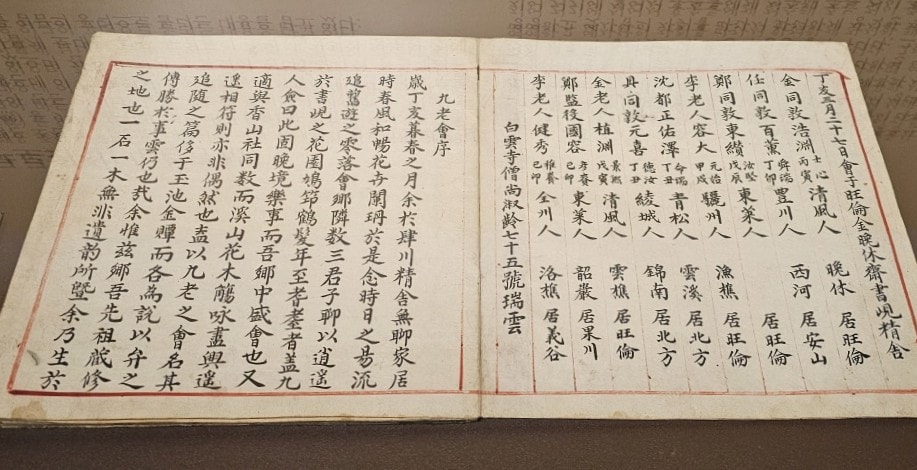 丁亥三月二十七日會于旺倫金晩休齋書峴精舍
金同敦浩淵 士心 丙寅 清風人 晩休 居旺倫
任同敦百萬 舜瑞 丁卯 豊川人 西河 居安山
鄭同敦東纘 汝堅 戊辰 東萊人 漁樵 居旺倫
李老人容大 元裕 甲戌 驪州人 雲溪 居北方
沈都正佑澤 命瑞 丁丑 青松人 錦南 居北方
具同敦元喜 德汝 丁丑 綾城人 雲樵 居旺倫
金老人植淵 戊寅 清風人 居旺倫
鄭監役國容 己卯 東萊人 韶巖 居果川
李老人健秀 己卯 全州人 洛樵 居義谷
白雲寺僧尚淑齡七十五號瑞雲
九老會序
歲丁亥暮春之月余於肆川精舍無聊家居
時春風和暢花卉闌珊於是念時日之易流
追舊遊之零落會鄉隣数三君子聊以逍遥
於書峴之花園鳩笻鶴髮年至耆耋者盖九
人僉曰此固晩境樂事而吾鄉中盛會也又
適與香山社同数而溪山花木觴咏盡興遥
遥相符則亦非偶然也盍以九老之會名其
追随之篇侈于玉池金贉而各為説以弁之
傳勝於事雺仍也哉余惟兹鄉吾先祖蔵修
之地也一石一木無非遺韵所曁余乃生於